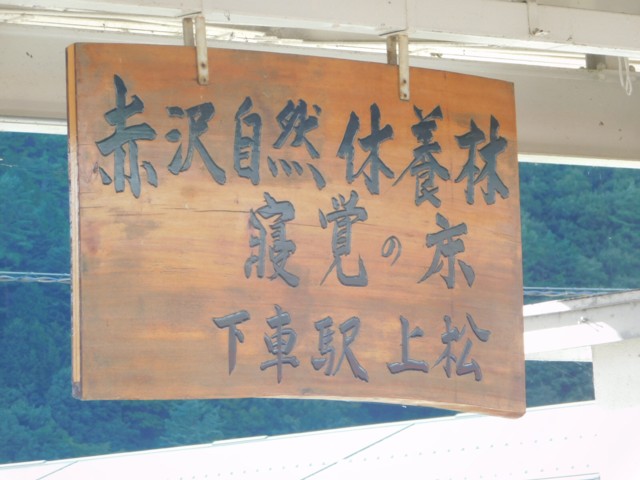 赤沢自然休養林
寝覚の床
下車駅上松